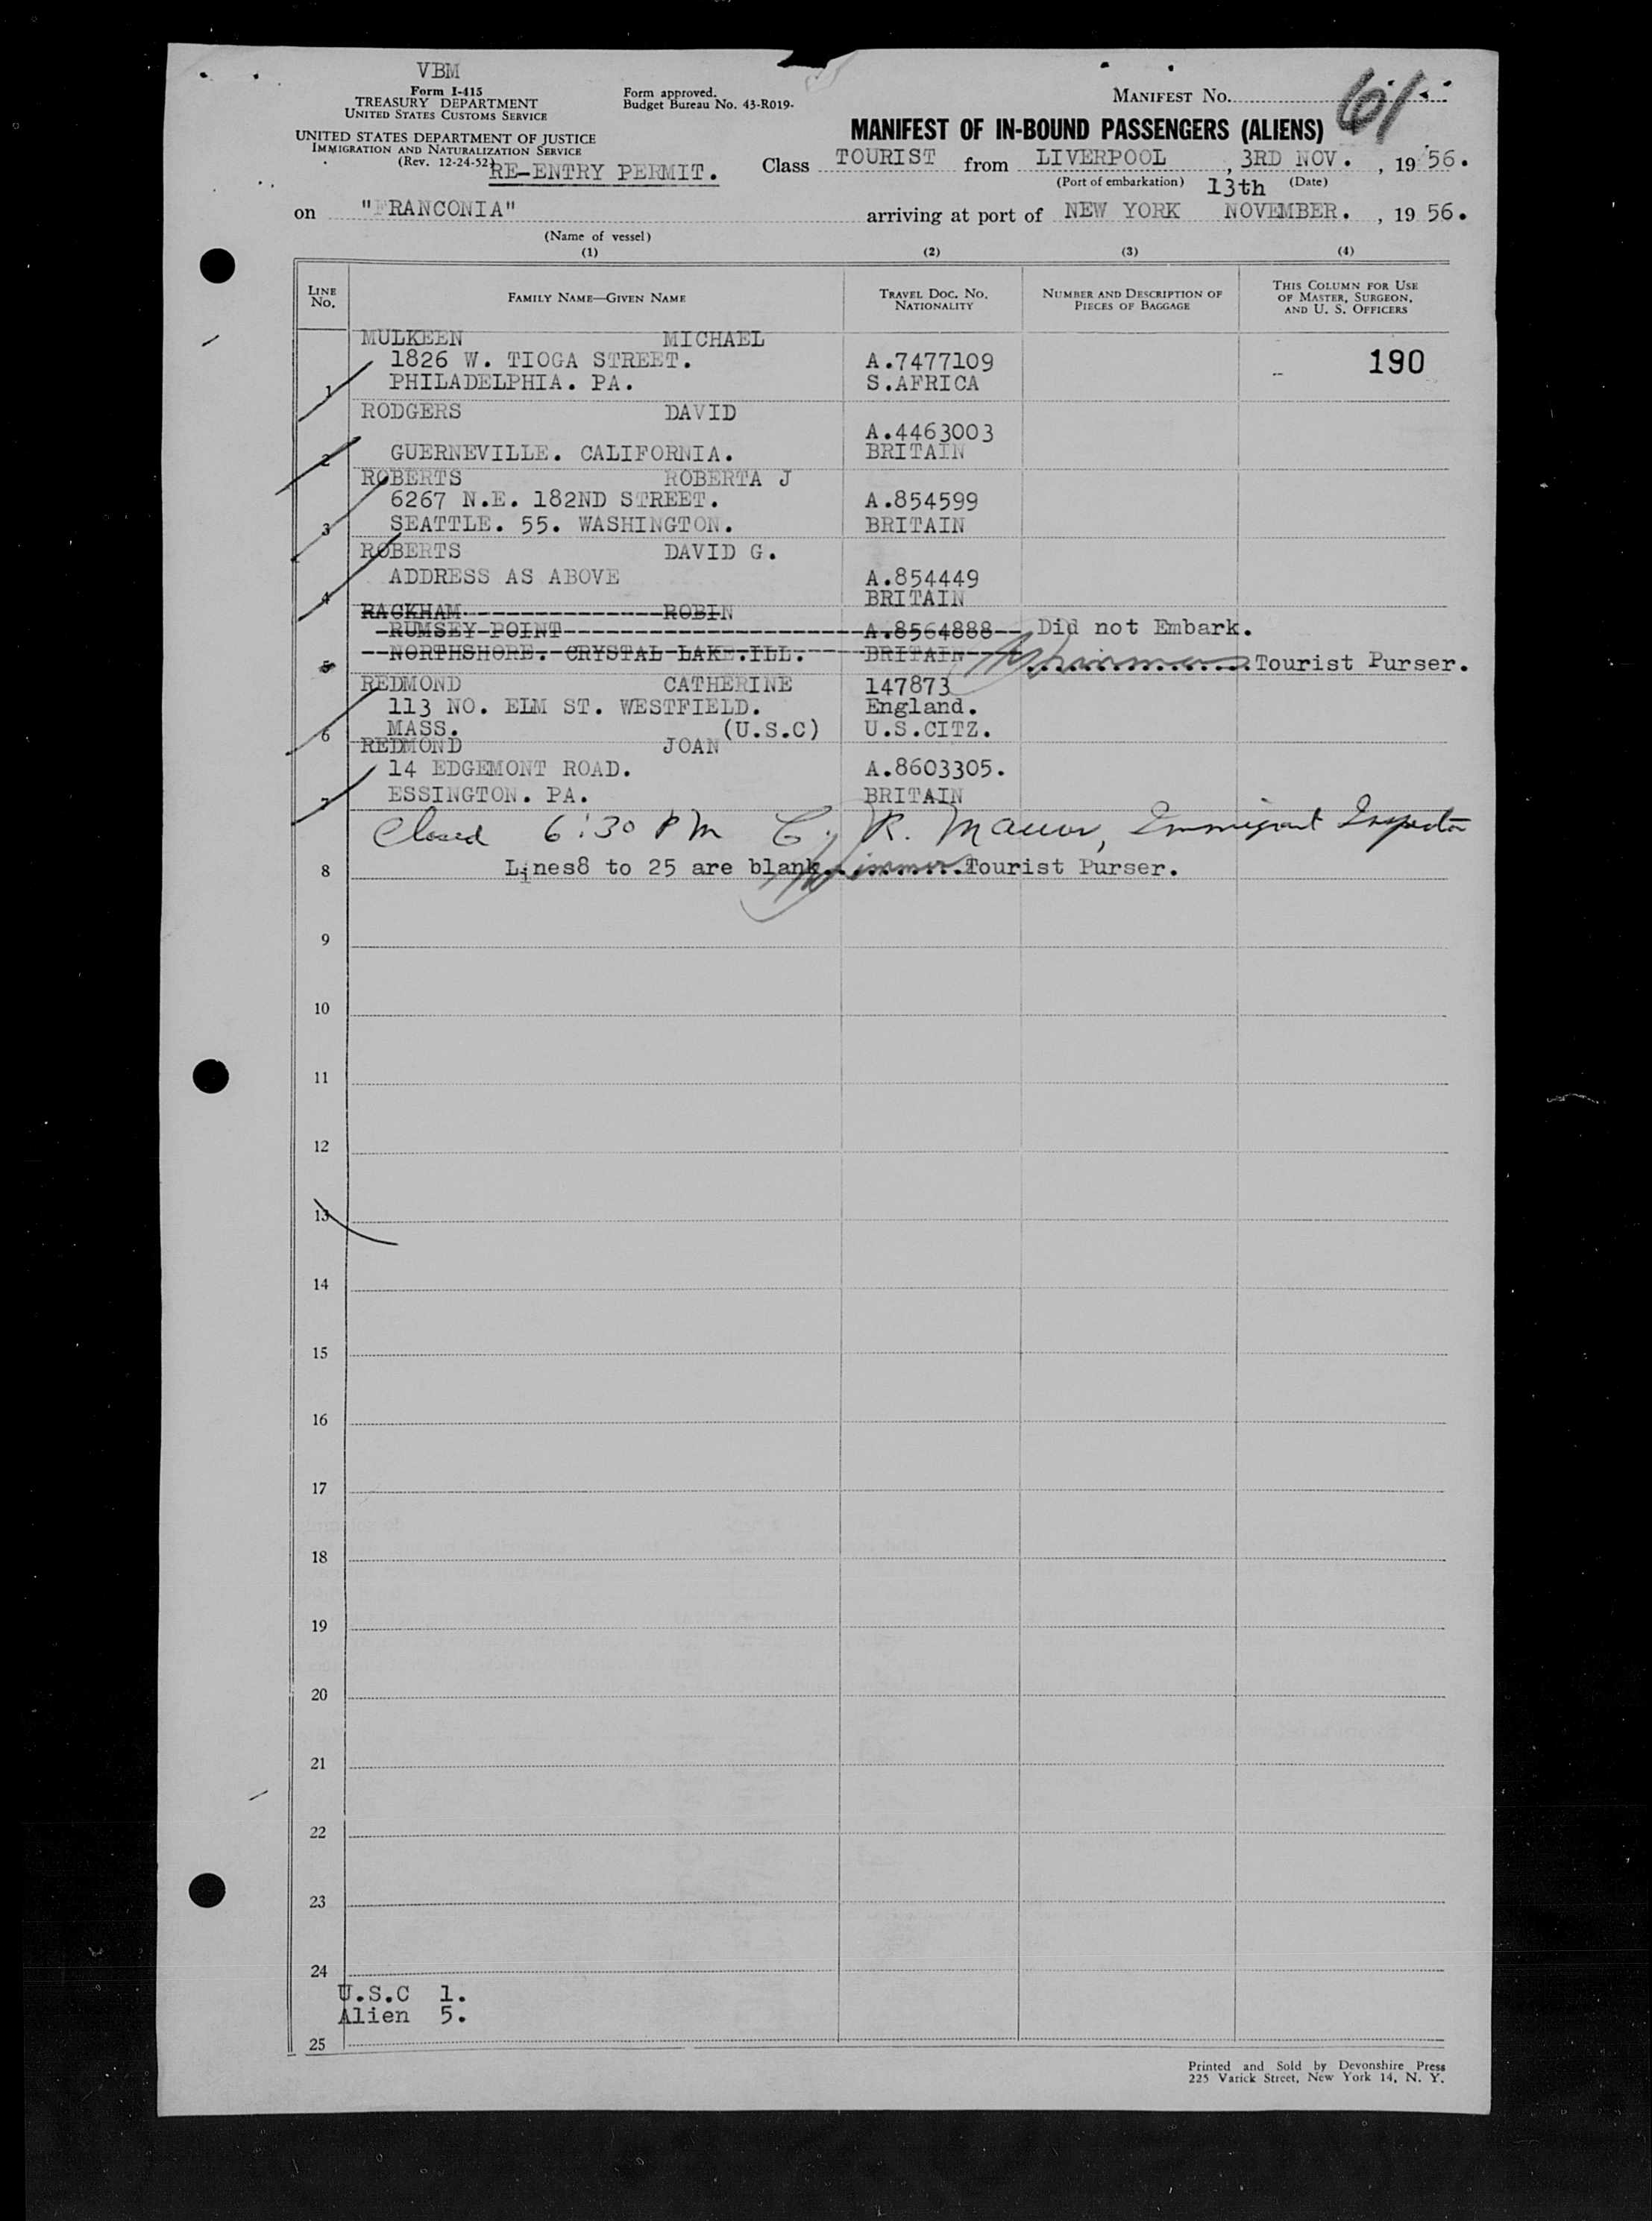 VBM
Form I-415
TREASURY DEPARTMENT
UNITED STATES CUSTOMS SERVICE
UNITED STATES DEPARTMENT OF JUSTICE
IMMIGRATION AND NATURALIZATION SERVICE
(Rev. 12-24-52)
RE-ENTRY PERMIT.
Form approved.
Budget Bureau No. 43-R019-
MANIFEST NO. 61
MANIFEST OF IN-BOUND PASSENGERS (ALIENS)
Class TOURIST from LIVERPOOL, 3RD NOV. , 19 56.
(Port of embarkation) (Date)
13th
on "FRANCONIA" arriving at port of NEW YORK NOVEMBER. , 19 56.
(Name of vessel)
(1) (2) (3) (4)
LINE NO. FAMILY NAME—GIVEN NAME TRAVEL DOC. NO. NATIONALITY NUMBER AND DESCRIPTION OF PIECES OF BAGGAGE THIS COLUMN FOR USE OF MASTER, SURGEON, AND U. S. OFFICERS
MULKEEN MICHAEL
1826 W. TIOGA STREET. A.7477109 190
1 PHILADELPHIA. PA. S.AFRICA
RODGERS DAVID
A.4463003
2 GUERNEVILLE. CALIFORNIA. BRITAIN
ROBERTS ROBERTA J
6267 N.E. 182ND STREET. A.854599
3 SEATTLE. 55. WASHINGTON. BRITAIN
ROBERTS DAVID G.
ADDRESS AS ABOVE A.854449
4 BRITAIN
RACKHAM ROBIN
RUMSEY POINT A.8564888 Did not Embark.
5 NORTHSHORE. CRYSTAL LAKE.ILL. BRITAIN Tourist Purser.
REDMOND CATHERINE 147873
113 NO. ELM ST. WESTFIELD. England.
6 MASS. (U.S.C) U.S.CITZ.
REDMOND JOAN
14 EDGEMONT ROAD. A.8603305.
7 ESSINGTON. PA. BRITAIN
Closed 6:30 PM C. R. Immigrant Inspector
8 Lines8 to 25 are blank. Tourist Purser.
9
10
11
12
13
14
15
16
17
18
19
20
21
22
23
24
U.S.C 1.
Alien 5.
25
Printed and Sold by Devonshire Press
225 Varick Street, New York 14, N. Y.